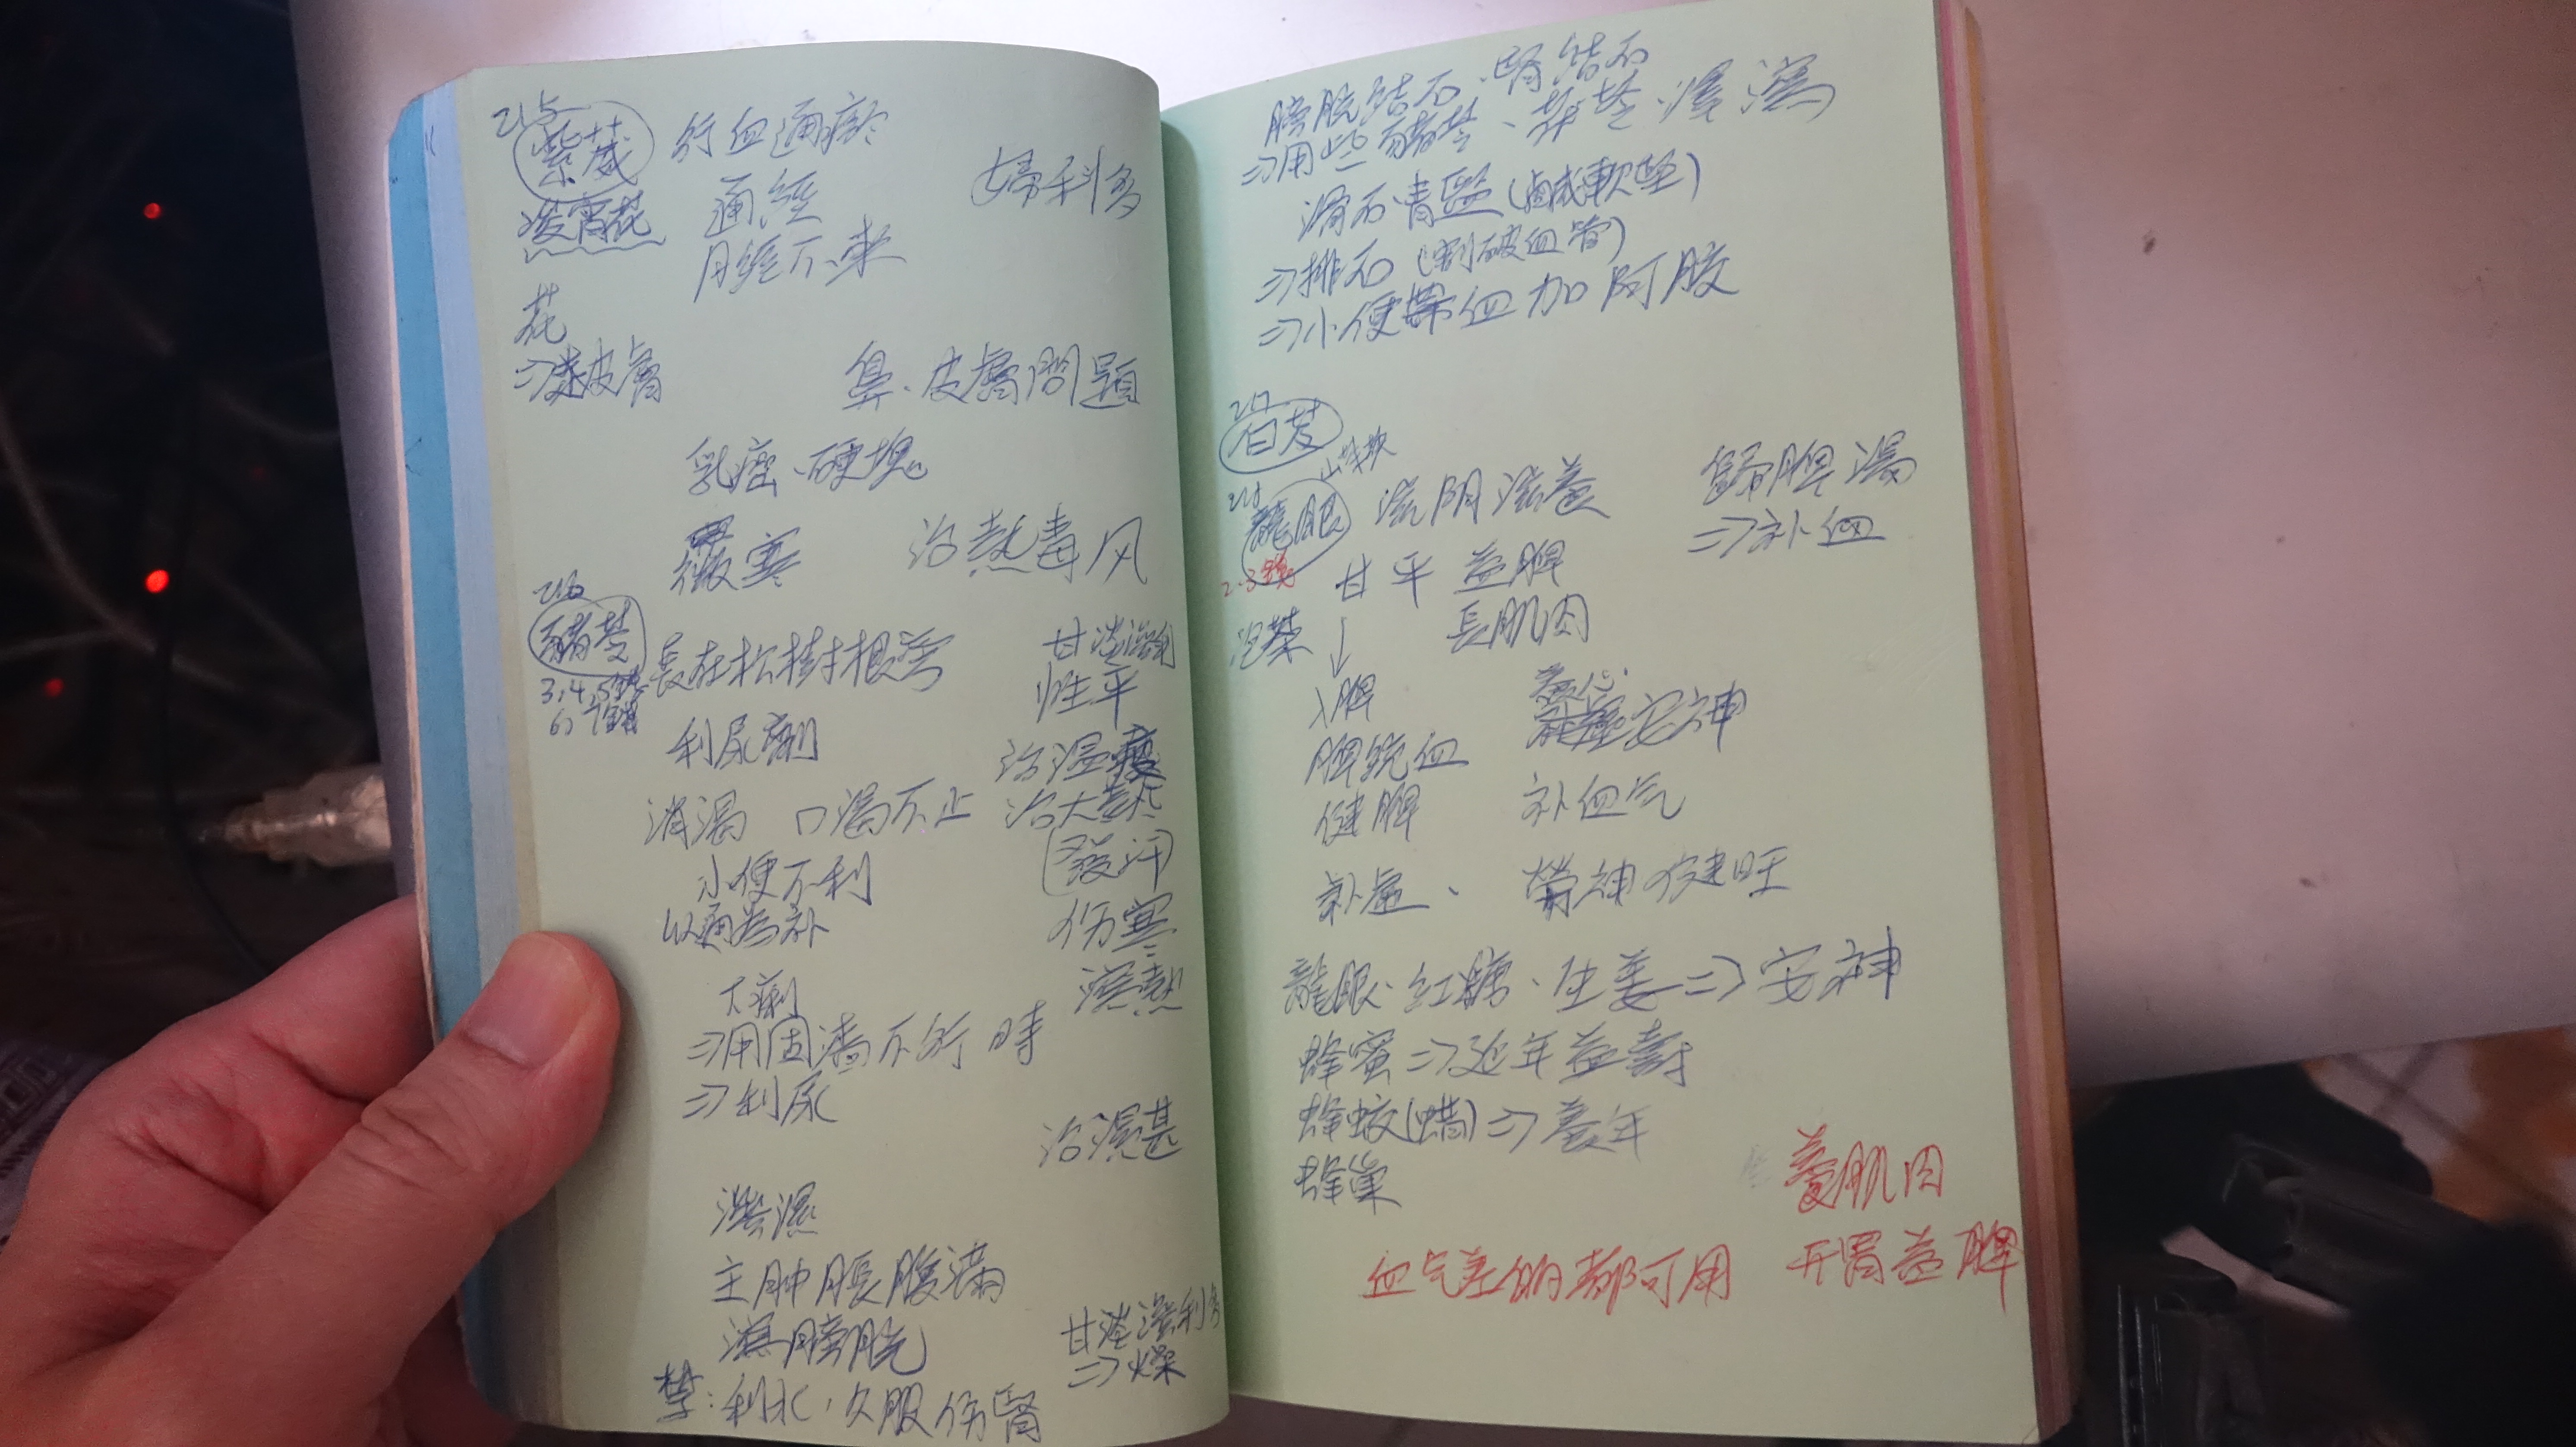 215
紫葳 行血通瘀
凌霄花 通經 婦科多
月經不來
花
⇒走皮膚 鼻、皮膚問題
乳癌、硬塊
微寒 治熱毒风
216
豬苓 長在松樹根旁 甘淡滲利
3.4.5錢 性平
6、7錢
利尿劑 治温疫
消渴 口渴不止 治大熱
小便不利 (發汗)
以通為补 伤寒
下劑 濕熱
⇒用固濇不行時
⇒利尿
治濕甚
滲濕
主肿脹腹滿
濕膀胱 甘淡滲利多
⇒燥
禁:利水,久服伤腎
膀胱結石、腎結石
⇒用些豬苓、茯苓、澤瀉
滑石、青鹽(鹹軟堅)
⇒排石(割破血管)
⇒小便帶血加阿胶
217
白芨
218
龍眼 滋阴滋養 歸脾湯
2-3錢 ⇒补血
甘平 益脾
泡茶 ↓ 長肌肉
入脾 養心
脾統血 安神
健脾 补血气
补虛、
龍眼、红糖、生姜⇒安神
蜂蜜⇒延年益壽
蜂蛟(蜡)⇒養年
蜂巢
養肌肉
血气差的都可用 开胃益脾